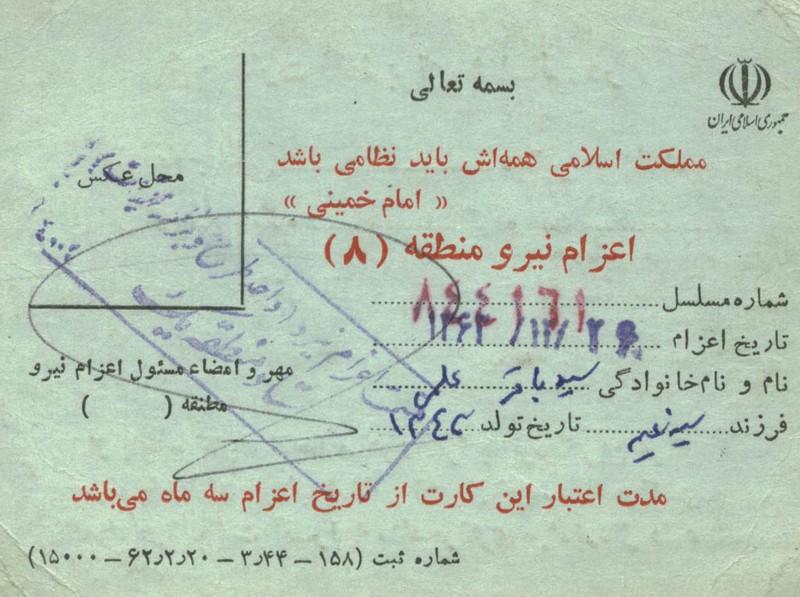 بسمه تعالی
جمهوری اسلامی ایران
مملکت اسلامی همه‌اش باید نظامی باشد
« امام خمینی »
اعزام نیرو منطقه (۸)
محل عکس
شماره مسلسل
تاریخ اعزام ۱۳۶۲/۱۲/۲
نام و نام‌خانوادگی سید باقر علمی
فرزند تاریخ تولد
مهر و امضاء مسئول اعزام نیرو
مطنقه ( )
مدت اعتبار این کارت از تاریخ اعزام سه ماه می‌باشد
شماره ثبت (۱۵۸ – ۳٫۴۴ – ۶۲٫۲٫۲۰ – ۱۵۰۰۰)